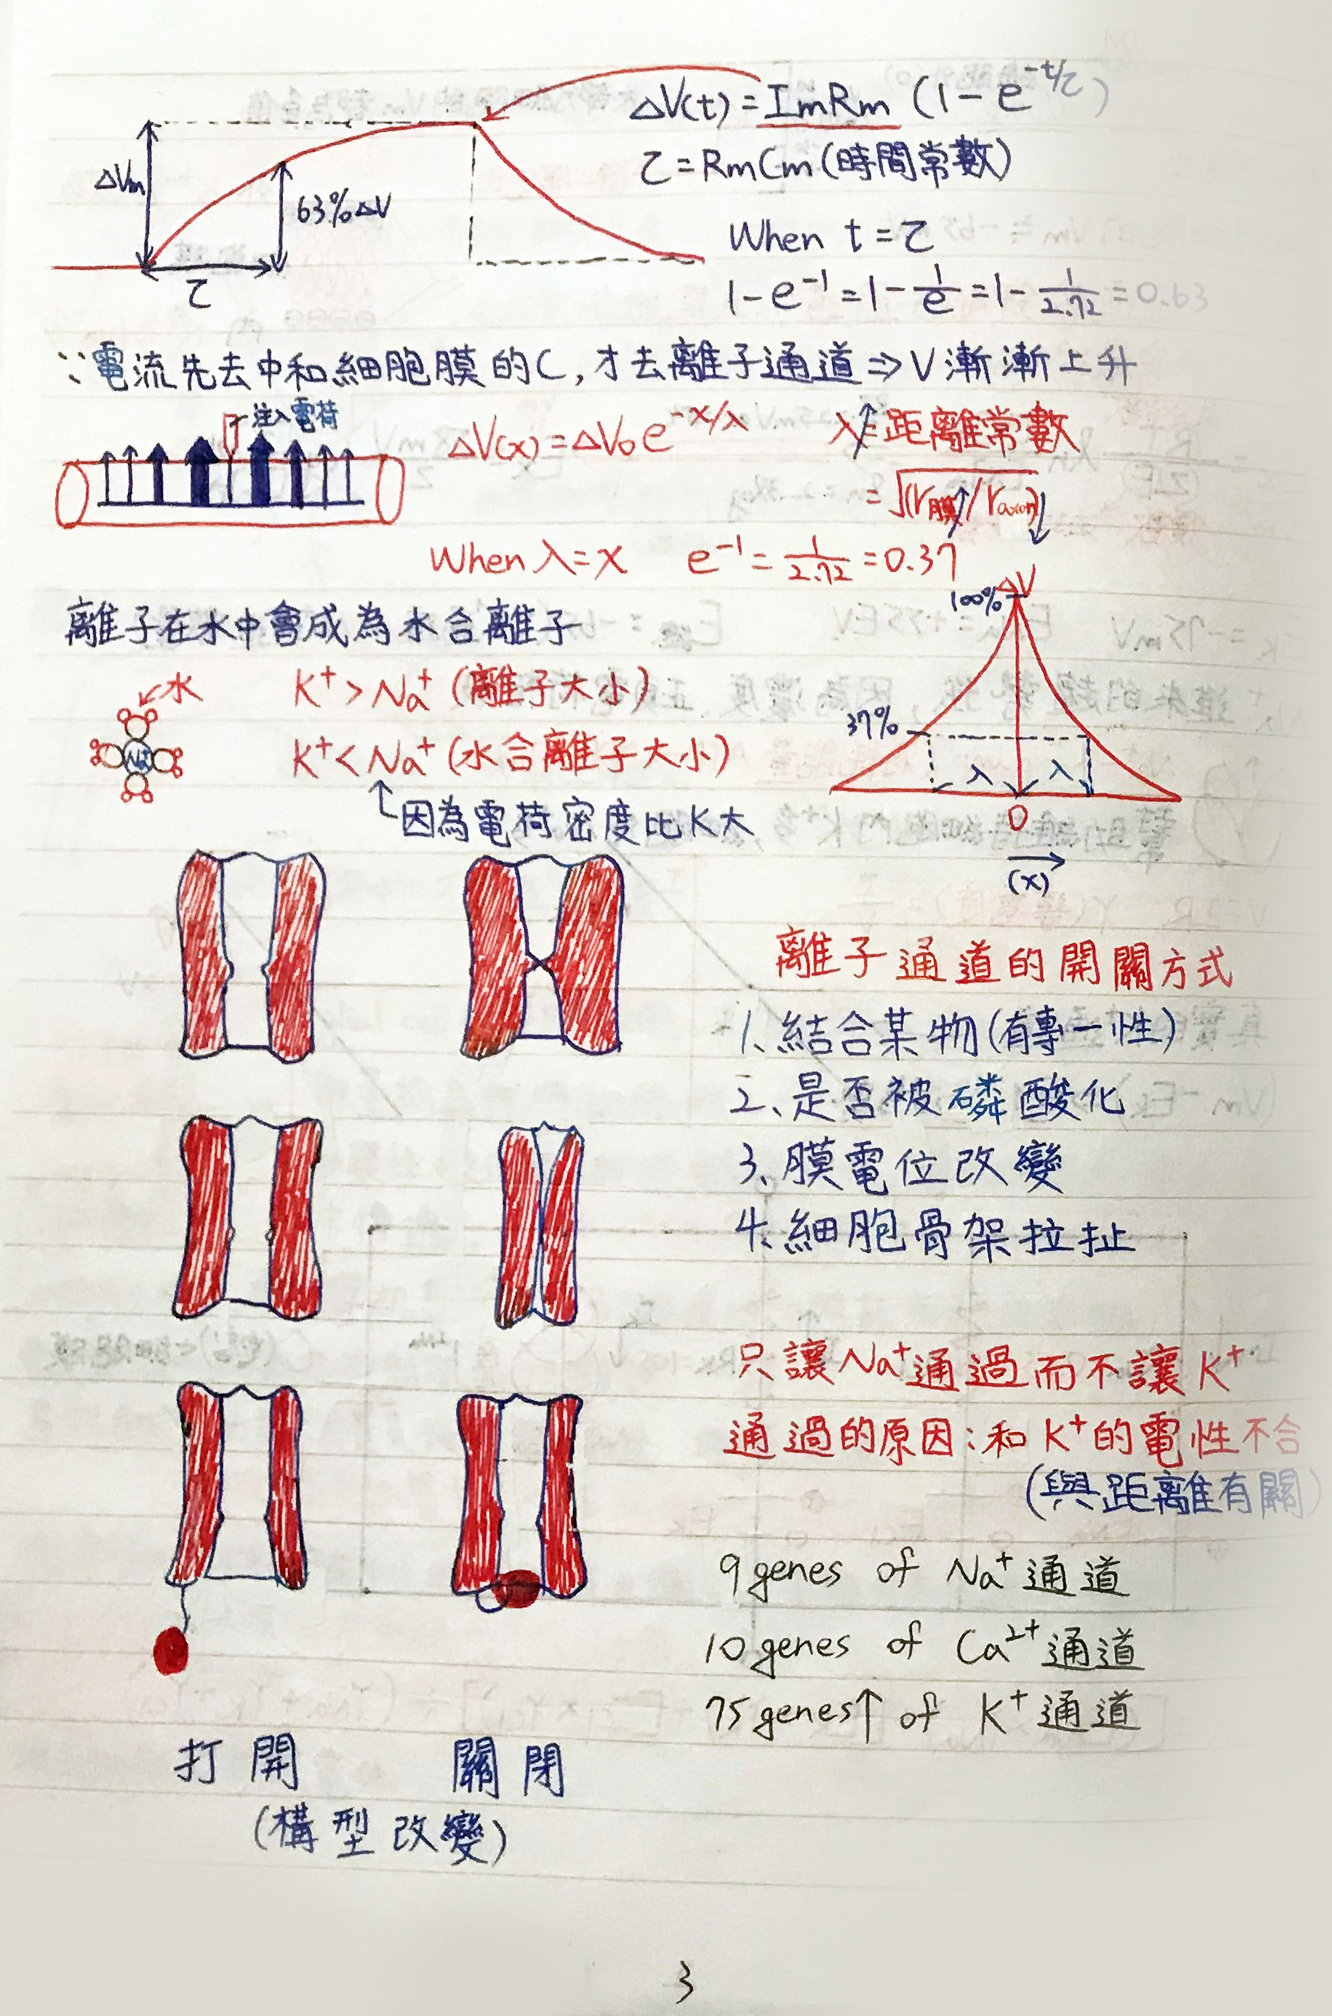 ΔV(t)=ImRm (1-e^-t/τ)
τ=RmCm(時間常數)
ΔVm
63%ΔV
τ
When t=τ
1-e^-1=1-1/e=1-1/2.72=0.63
∵電流先去中和細胞膜的C,才去離子通道⇒V漸漸上升
注入電荷
ΔV(x)=ΔV₀e^-x/λ
λ↑=距離常數
=√(r膜↑/raxon↓)
When λ=x e^-1=1/2.72=0.37
離子在水中會成為水合離子
水
Na⁺
K⁺>Na⁺(離子大小)
K⁺<Na⁺(水合離子大小)
因為電荷密度比K大
ΔV
100%
37%
λ λ
0
(x)
離子通道的開關方式
1、結合某物(有專一性)
2、是否被磷酸化
3、膜電位改變
4、細胞骨架拉扯
只讓Na⁺通過而不讓K⁺
通過的原因:和K⁺的電性不合
(與距離有關)
9genes of Na⁺通道
10genes of Ca²⁺通道
75genes↑ of K⁺通道
打開 關閉
(構型改變)
3